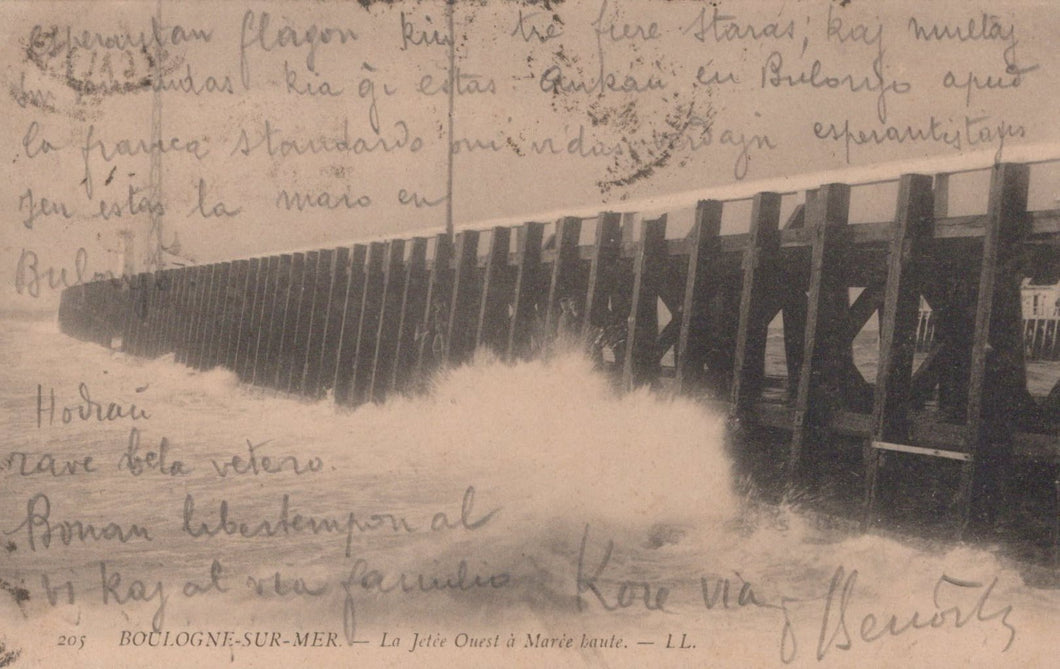 esperantan flagon kiu tre fiere staras; kaj multaj
kia ĝi estas. Ankau en Bulonjo apud
la franca standardo oni vidas esperantistajn
Jen estas la maro en
Bulonjo
Hodiaŭ
rave bela vetero.
Bonan libertempon al
vi kaj al via familio Kore via
205 BOULOGNE-SUR-MER. — La Jetée Ouest à Marée haute. — LL.